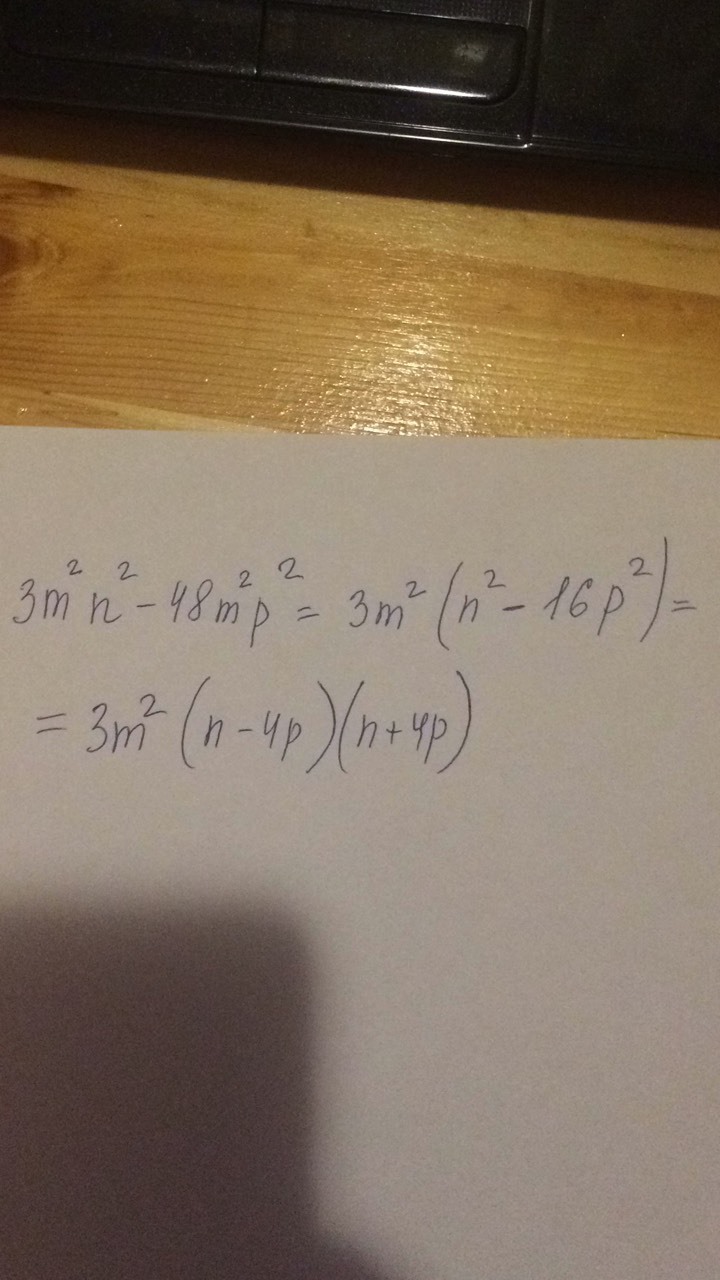 3m²n² - 48m²p² = 3m²(n² - 16p²) =
= 3m²(n - 4p)(n + 4p)